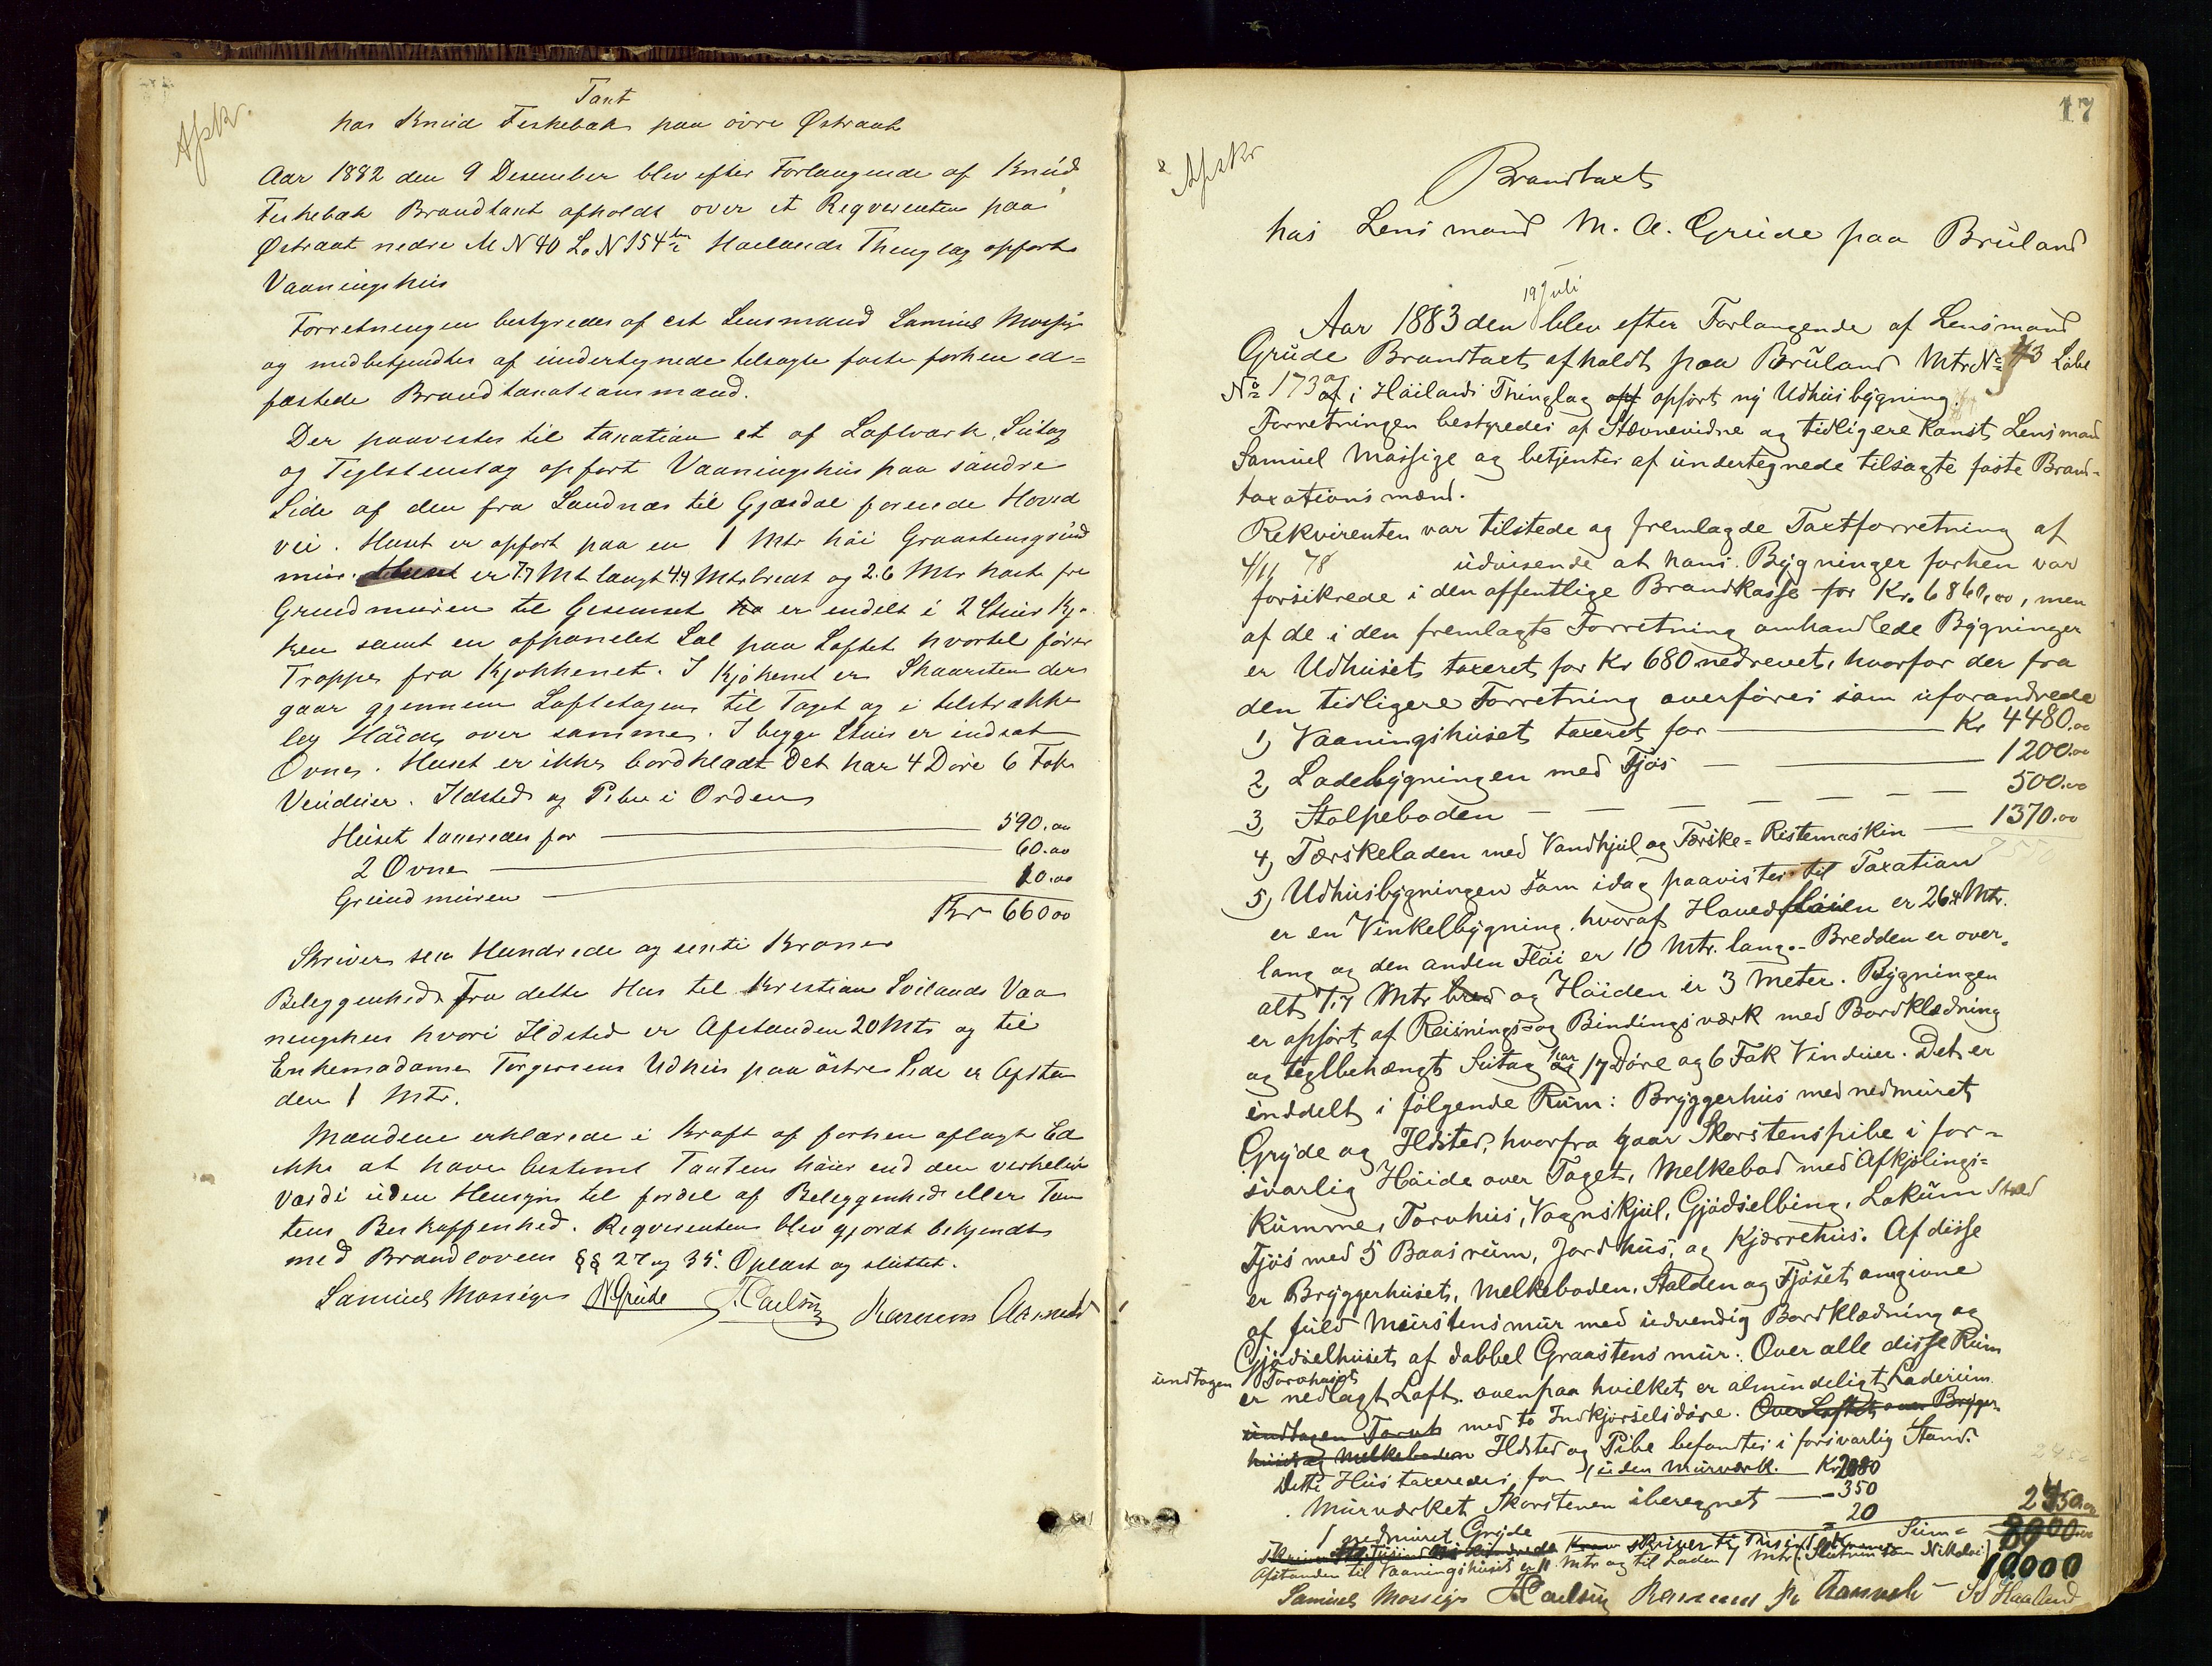 Afskr.
Taxt
hos Knud Fiskebæk paa øvre Østraat
Aar 1882 den 9 Desember blev efter Forlangende af Knud
Fiskebæk Brandtaxt afholdt over et Reqverenten paa
Østraat nedre M N 40 L. N 154 Høilands Thinglag opført
Vaaningshus
Forretningen bestyredes af cst Lensmand Samuel Mossige
og medbetjendtes af undertegnede tilsagte faste forhen ed=
fæstede Brandtaxationsmænd.
Der paavistes til taxation et af Loftværk, Sutag
og Teglstenstag opført Vaaningshus paa søndre
Side af den fra Sandnæs til Gjæsdal førende Hoved
vei. Huset er opført paa en 1 Mtr høi Graastensgrund
mur. Huset er 7.7 Mt langt 4.4 Mtr bredt og 2.6 Mtr høit fra
Grundmuren til Gesemset er indelt i 2 Stuer Kjø
ken samt en oppanelet Sal paa Loftet hvortil fører
Trappe fra Kjøkkenet. I Kjøkenet er Skorsten der
gaar gjennem Loftetagen til Taget og i tilstrække
lig Høide over samme. I begge Stuer er indsat
Ovne. Huset er ikke bordklædt Det har 4 Døre 6 Fak
Vinduer. Ildsted og Pibe i Orden
Huset taxeredes for 590.00
2 Ovne 60.00
Grundmuren 10.00
Kr 660 00
Skriver sex Hundrede og sexti Kroner
Beleggenhed Fra dette Hus til Kristian Svilands Vaa
ningshus hvori Ildsted er Afstanden 20 Mtr og til
Enkemadame Torgersens Udhus paa østre Side er Afstan
den 1 Mtr.
Mændene erklærede i Kraft af forhen aflagt Ed
ikke at have bestemt Taxten høier end den virkelie
Værdi uden Hensyn til fordel af Beleggenhed eller Tom
tens Beskaffenhed. Reqverenten blev gjordt bekjendt
med Brandlovens §§ 27 og 35. Oplæst og sluttet.
Samuel Mossige N. Grude T. Carlsen Rasmus Asmerv
17
Afskr
Brandtaxt
hos Lensmand M. A. Grude paa Bruland
19 Juli
Aar 1883 den blev efter Forlangende af Lensmand
Grude Brandtaxt afholdt paa Bruland Mtr No 43 Løbe
No 173a i Høilands Thinglag opført ny Udhusbygning.
Forretningen bestyredes af Stævnevidne og tidligere Konst. Lensmand
Samuel Mossige og betjentes af undertegnede tilsagte faste Brand-
taxationsmænd.
Rekvirenten var tilstede og fremlagde Taxtforretning af
4/11 78 udvisende at hans Bygninger forhen var
forsikrede i den offentlige Brandkasse for Kr. 6860,00, men
af de i den fremlagte Forretning omhandlede Bygninger
er Udhuset taxeret for Kr 680 nedrevet, hvorfor der fra
den tidligere Forretning overføres som uforandrede
1) Vaaningshuset taxeret for Kr 4480.00
2) Ladebygningen med Fjøs 1200.00
3) Stolpeboden 500.00
4) Tærskeladen med Vandhjul og Tærske= Ristemaskin 1370.00
5) Udhusbygningen som idag paavistes til Taxation
er en Vinkelbygning, hvoraf Hovedfløien er 26.4 Mtr.
lang og den anden Fløi er 10 Mtr. lang. Bredden er over-
alt 7,7 Mtr bred og Høiden er 3 Meter. Bygningen
er opført af Reisnings- og Bindingsværk med Bordklædning
og teglbehængt Sutag har 17 Døre og 6 Fak Vinduer. Det er
inddelt i følgende Rum: Bryggerhus med nedmuret
Gryde og Ildsted, hvorfra gaar Skorstenspibe i for=
svarlig Høide over Taget, Melkebod med Afkjølings=
kumme, Torvhus, Vognskjul, Gjødselbing, Lokum Stald
Fjøs med 5 Baasrum, Jordhus, og Kjærrehus. Af disse
er Bryggerhuset, Melkeboden, Stalden og Fjøset omgivne
af fuld Murstensmur med udvendig Bordklædning og
Gjødselhuset af dobbel Graastensmur. Over alle disse Rum
undtagen Torvhuset
er nedlagt Loft ovenpaa hvilket er almindeligt Laderum
undtagen Torvh med to Indkjørselsdøre. Over Loftet over Brygger-
huset og Melkeboden Ildsted og Pibe befandtes i forsvarlig Stand.
Dette Hus taxeredes for uden Murværk. Kr 2080
Murværket Skorstenen iberegnet - 350
1 nedmuret Gryde = 20
2450.00
Sum= 10000
skriver ti Tusind Kroner
Afstanden til Vaaningshuset er 11 Mtr og til Laden 7 Mtr
Samuel Mossige T. Carlsen Haaland